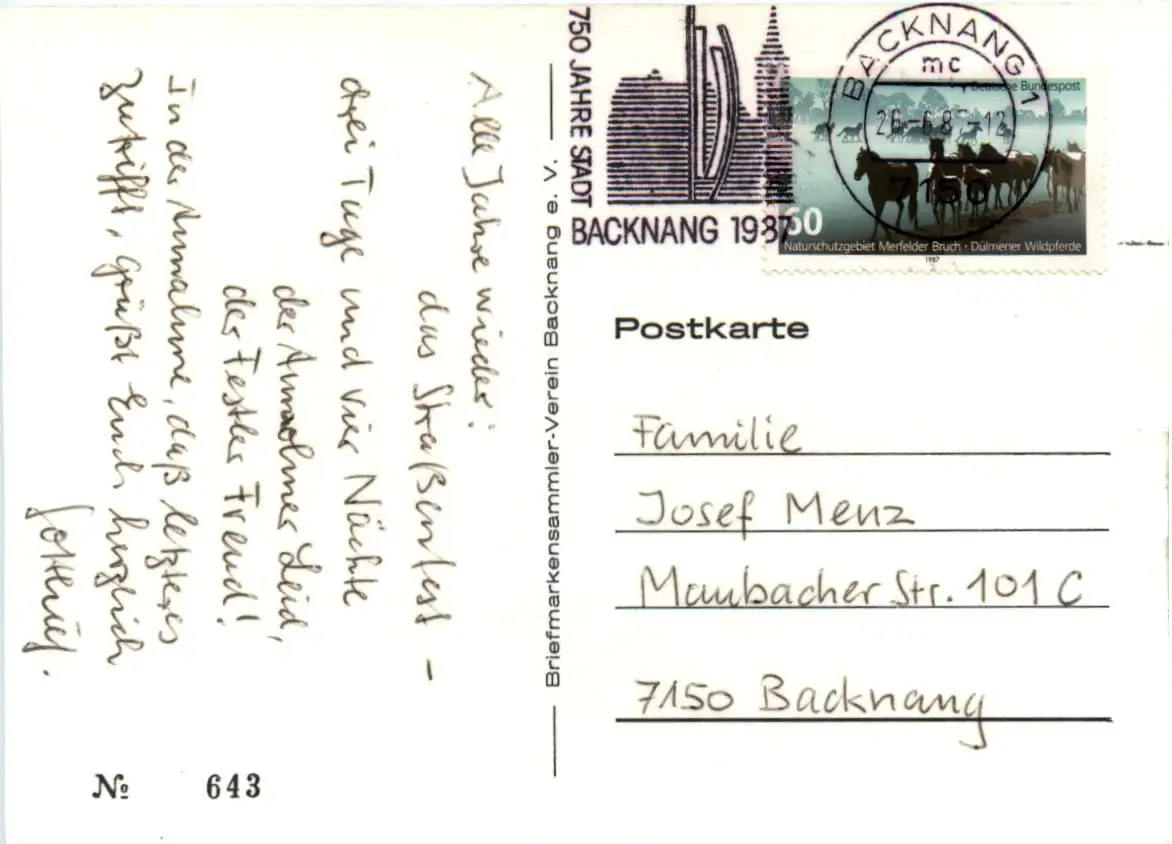 Alle Jahre wieder:
das Straßenfest –
drei Tage und vier Nächte
der Anwohner Leid,
der Festler Freud!
In der Annahme, daß letzteres
zutrifft, grüßt Euch herzlich
№ 643
Briefmarkensammler-Verein Backnang e. V.
750 JAHRE STADT
BACKNANG 1987
BACKNANG 1
mc
7150
Deutsche Bundespost
60
Naturschutzgebiet Merfelder Bruch · Dülmener Wildpferde
1987
Postkarte
Familie
Josef Menz
Maubacher Str. 101 C
7150 Backnang